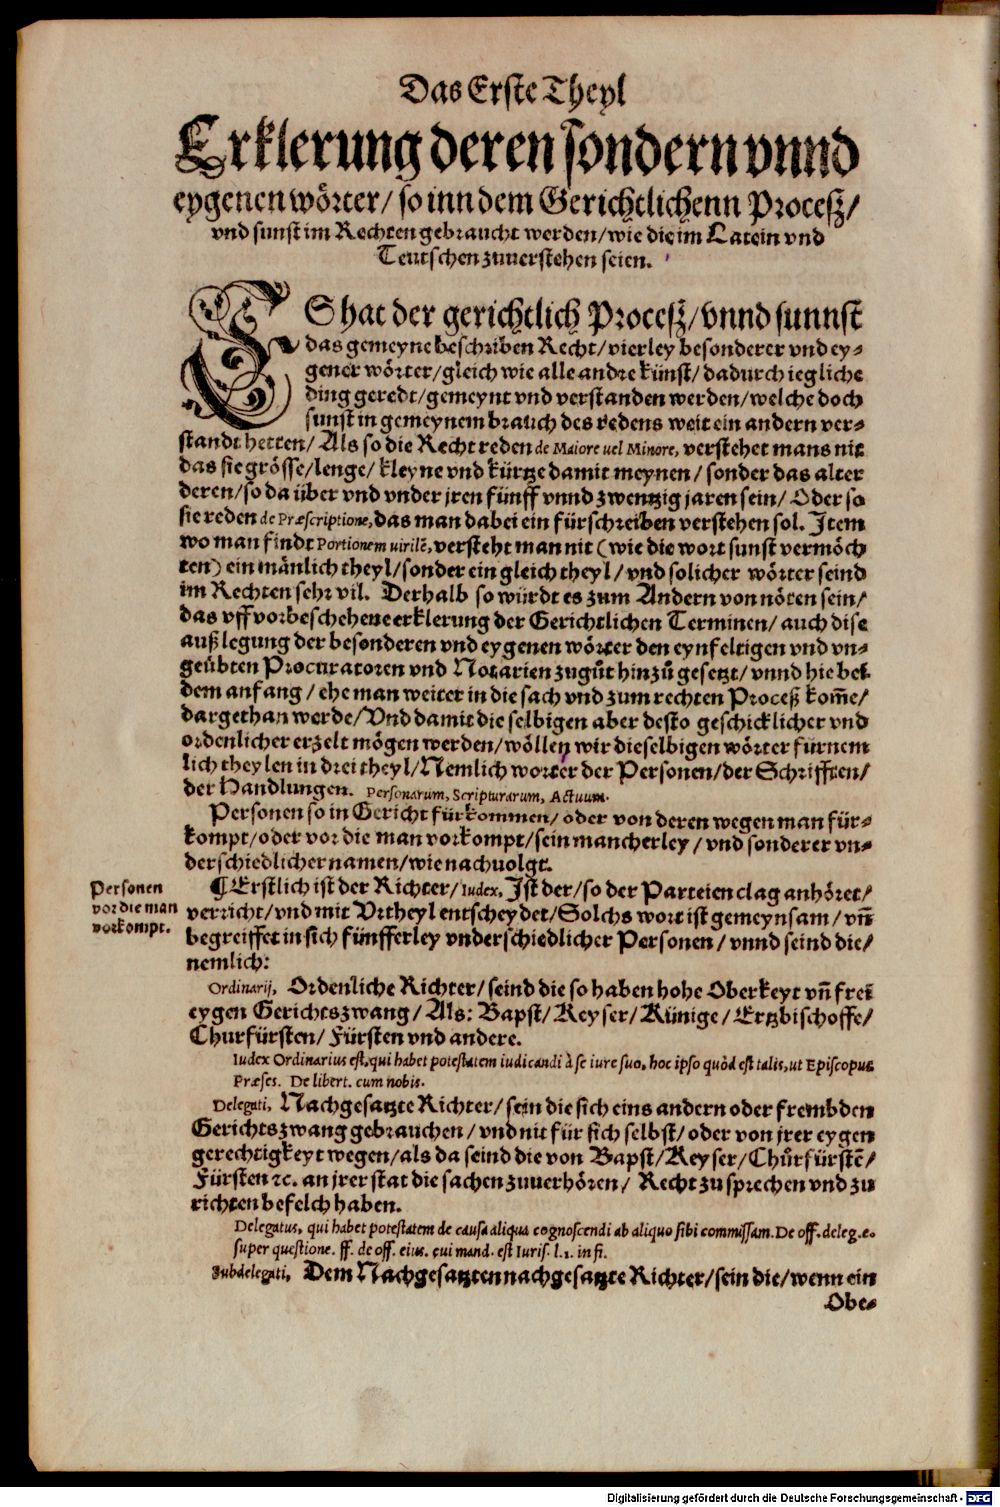 Das Erste Theyl
Erklerung deren sondern vnnd
eygenen wörter/ so inn dem Gerichtlichenn Proceß/
vnd sunst im Rechten gebraucht werden/ wie die im Latein vnd
Teutschen zuuerstehen seien.
ES hat der gerichtlich Proceß/ vnnd sunnst
das gemeyne beschriben Recht/ vierley besonderer vnd ey-
gener wörter/ gleich wie alle andre künst/ dadurch iegliche
ding geredt/ gemeynt vnd verstanden werden/ welche doch
sunst in gemeynem brauch des redens weit ein andern ver-
standt hetten/ Als so die Recht reden de Maiore uel Minore, verstehet mans nit
das sie grösse/ lenge/ kleyne vnd kürtze damit meynen/ sonder das alter
deren/ so da über vnd vnder jren fünff vnnd zwentzig jaren sein/ Oder so
sie reden de Præscriptione, das man dabei ein fürschreiben verstehen sol. Item
wo man findt Portionem uirilē, versteht man nit (wie die wort sunst vermöch
ten) ein mänlich theyl/ sonder ein gleich theyl/ vnd solicher wörter seind
im Rechten sehr vil. Derhalb so würdt es zum Andern von nöten sein/
das vff vorbeschehene erklerung der Gerichtlichen Terminen/ auch dise
außlegung der besonderen vnd eygenen wörter den eynfeltigen vnd vn-
geübten Procuratoren vnd Notarien zugůt hinzů gesetzt/ vnnd hie bei
dem anfang/ ehe man weiter in die sach vnd zum rechten Proceß kom̄e/
dargethan werde/ Vnd damit die selbigen aber desto geschicklicher vnd
ordenlicher erzelt mögen werden/ wöllen wir dieselbigen wörter fürnem
lich theylen in drei theyl/ Nemlich worter der Personen/ der Schrifften/
der Handlungen. Personarum, Scripturarum, Actuum.
Personen so in Gericht fürkommen/ oder von deren wegen man für-
kompt/ oder vor die man vorkompt/ sein mancherley/ vnd sonderer vn-
derschiedlicher namen/ wie nachuolgt.
Personen
vor die man
vorkompt.
¶ Erstlich ist der Richter/ Iudex. Ist der/ so der Parteien clag anhöret/
verricht/ vnd mit Vrtheyl entscheydet/ Solchs wort ist gemeynsam/ vn̄
begreiffet in sich fünfferley vnderschiedlicher Personen/ vnnd seind die/
nemlich:
Ordinarij, Ordenliche Richter/ seind die so haben hohe Oberkeyt vn̄ frei
eygen Gerichtszwang/ Als: Bapst/ Keyser/ Künige/ Ertzbischoffe/
Churfürsten/ Fürsten vnd andere.
Iudex Ordinarius est, qui habet potestatem iudicandi à se iure suo, hoc ipso quòd est talis, ut Episcopus
Præses. De libert. cum nobis.
Delegati, Nachgesatzte Richter/ sein die sich eins andern oder frembden
Gerichtszwang gebrauchen/ vnd nit für sich selbst/ oder von jrer eygen
gerechtigkeyt wegen/ als da seind die von Bapst/ Keyser/ Chůrfürstē/
Fürsten ꝛc. an jrer stat die sachen zuuerhören/ Recht zu sprechen vnd zu
richten befelch haben.
Delegatus, qui habet potestatem de causa aliqua cognoscendi ab aliquo sibi commissam. De off. deleg. c.
super questione. ff. de off. eius. cui mand. est Iuris. l. 1. in fi.
Subdelegati, Dem Nachgesatzten nachgesatzte Richter/ sein die/ wenn ein
Obe-
Digitalisierung gefördert durch die Deutsche Forschungsgemeinschaft - DFG